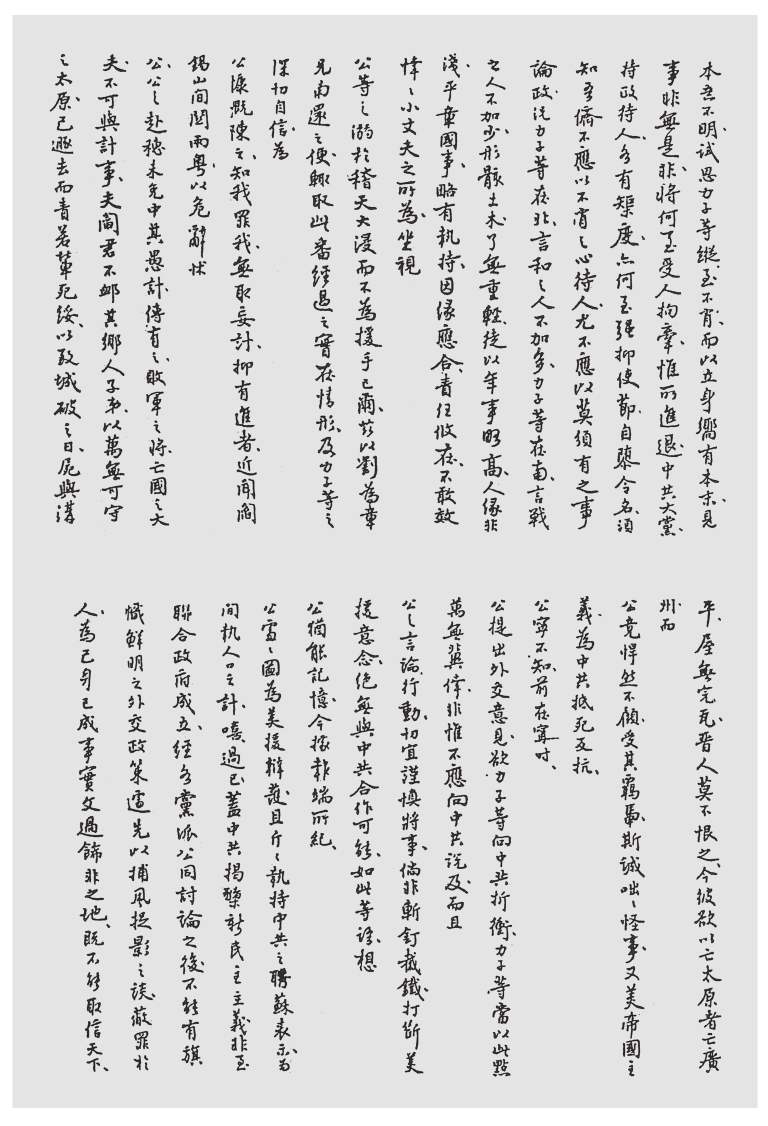 本意不明、試思力子等縱至不肖、而以立身嚮有本末、見
事非無是非、將何至受人拘牽、惟所進退、中共大黨、
持政待人、多有榘度、亦何至強抑使節、自隳令名、須
知吾儕不應以不肖之心待人、尤不應以莫須有之事
論政、況力子等在北、言和之人不加多、力子等在南、言戰
之人不加少、形骸土木、了無重輕、徒以年事略高、人緣非
淺、平章國事、略有執持、因緣應合、責任攸在、不敢效
悻悻小丈夫之所為、坐視
公等之溺於稽天大浸而不為援手已爾、茲以劉為章
兄南還之便、輒取此番經過之實在情形、及力子等之
深切自信、為
公慷慨陳之、知我罪我、無取妄計、抑有進者、近聞閻
錫山間關兩粵、以危辭怵
公、公之赴穗、未免中其愚計、傳有之、敗軍之將、亡國之大
夫、不可與計事、夫閻君不卹其鄉人子弟、以萬無可守
之太原、已遯去而責若輩死綏、以致城破之日、屍與溝
平、屋無完瓦、晉人莫不恨之、今彼欲以亡太原者亡廣
州、而
公竟悍然不顧、受其羈馽、斯誠咄咄怪事、又美帝國主
義為中共抵死反抗、
公寧不知、前在寧時、
公提出外交意見、欲力子等向中共折衝、力子等當以此點
萬無冀倖、非惟不應向中共說及、而且
公之言論行動、切宜謹慎將事、倘非斬釘截鐵、打斷美
援意念、絕無與中共合作可能、如此等語、想
公猶能記憶、今據報端所紀、
公處處圖為美援辯護、且斤斤執持中共之聘蘇表示、為
間執人口之計、嘻過已、蓋中共揭櫫新民主主義、非至
聯合政府成立、經各黨派公同討論之後、不能有旗
幟鮮明之外交政策、遽先以捕風捉影之談、蔽罪於
人、為己身已成事實文過飾非之地、既不能取信天下、